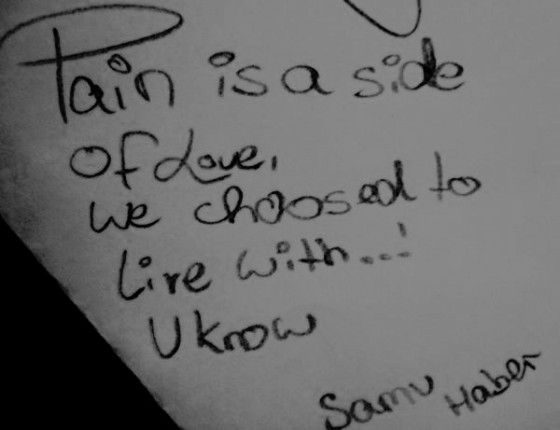 Pain is a side
of Love,
we choosed to
Live with...!
U know
Samu Haber